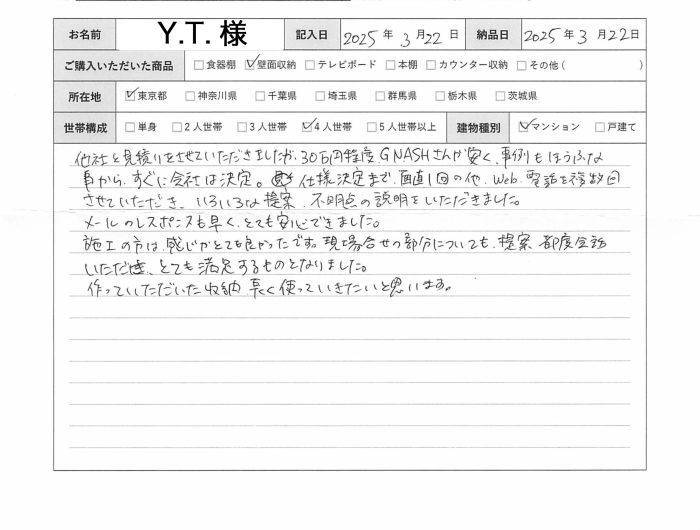 お名前 Y.T.様 記入日 2025年3月22日 納品日 2025年3月22日
ご購入いただいた商品 □食器棚 ☑壁面収納 □テレビボード □本棚 □カウンター収納 □その他( )
所在地 ☑東京都 □神奈川県 □千葉県 □埼玉県 □群馬県 □栃木県 □茨城県
世帯構成 □単身 □2人世帯 □3人世帯 ☑4人世帯 □5人世帯以上 建物種別 ☑マンション □戸建て
他社と見積りをさせていただきましたが、30万円程度、GNASHさんが安く、事例もほうふな
事から、すぐに会社は決定。仕様決定まで、面直1回の他、Web、電話を複数回
させていただき、いろいろな提案、不明点の説明をいただきました。
メールのレスポンスも早く、とても安心できました。
施工の方は、感じがとても良かったです。現場合せの部分についても、提案、都度会話
いただき、とても満足するものとなりました。
作っていただいた収納、長く使っていきたいと思います。